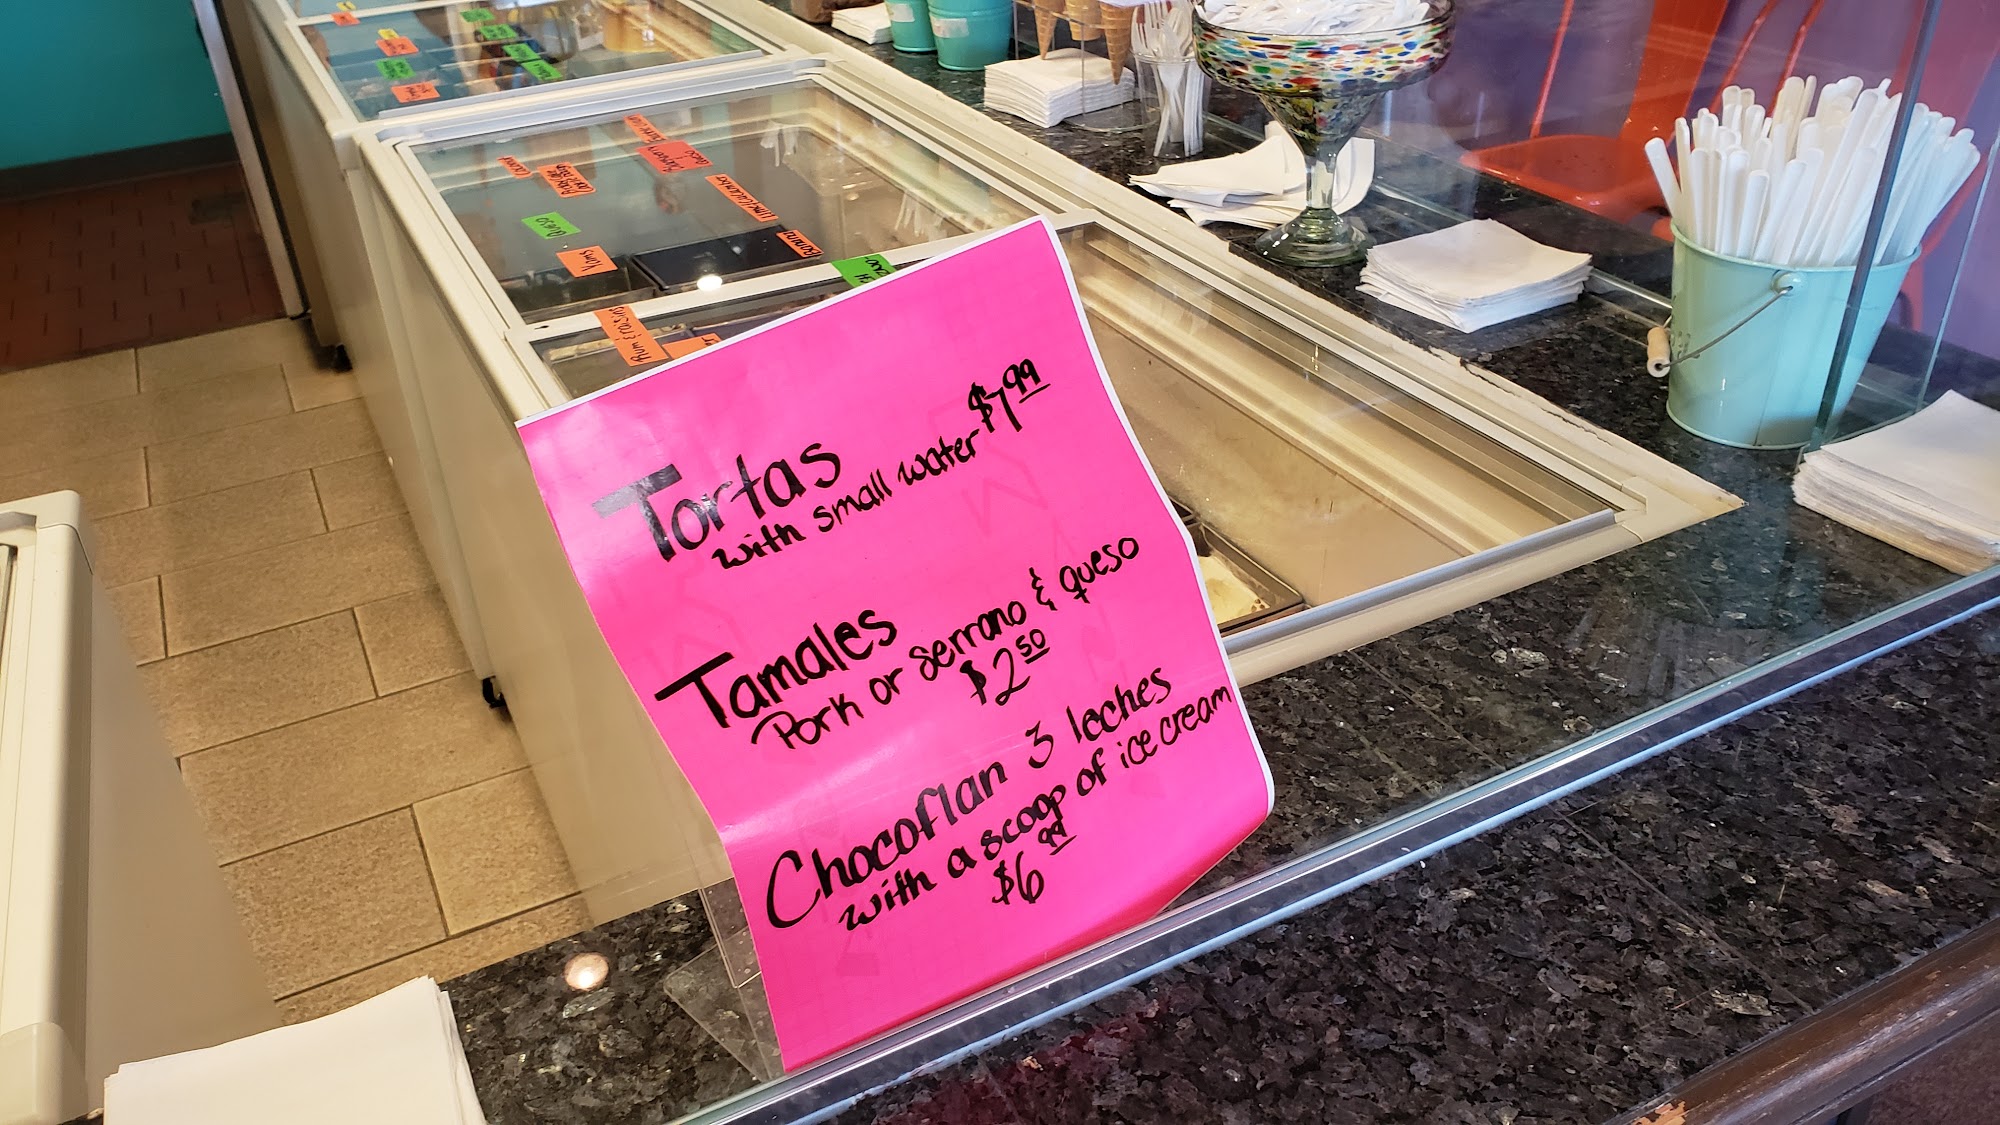 Tortas
with small water $7.99
Tamales
Pork or serrano & queso
$2.50
Chocoflan 3 leches
with a scoop of ice cream
$6.99
Queso
Rum & raisins